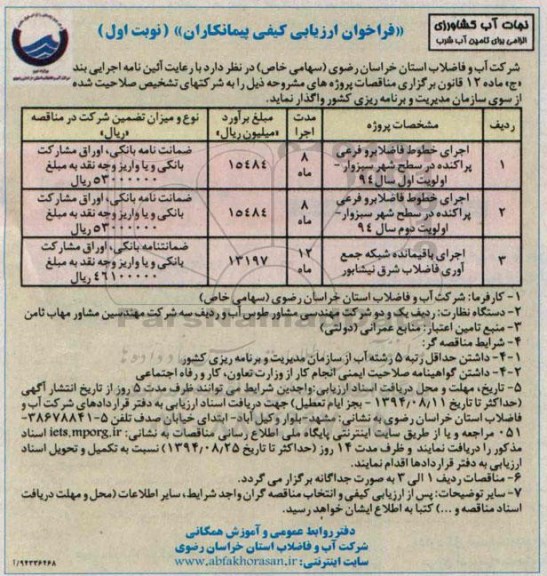 نجات آب کشاورزی
الزامی برای تامین آب شرب
«فراخوان ارزیابی کیفی پیمانکاران» (نوبت اول)
شرکت آب و فاضلاب استان خراسان رضوی (سهامی خاص) در نظر دارد با رعایت آئین نامه اجرایی بند
«ج» ماده ۱۲ قانون برگزاری مناقصات پروژه های مشروحه ذیل را به شرکتهای تشخیص صلاحیت شده
از سوی سازمان مدیریت و برنامه ریزی کشور واگذار نماید.
ردیف
مشخصات پروژه
مدت اجرا
مبلغ برآورد «میلیون ریال»
نوع و میزان تضمین شرکت در مناقصه «ریال»
۱
اجرای خطوط فاضلابرو فرعی
پراکنده در سطح شهر سبزوار -
اولویت اول سال ۹۴
۸ ماه
۱۵۴۸۴
ضمانت نامه بانکی، اوراق مشارکت
بانکی و یا واریز وجه نقد به مبلغ
۵۳۰۰۰۰۰۰۰ ریال
۲
اجرای خطوط فاضلابرو فرعی
پراکنده در سطح شهر سبزوار-
اولویت دوم سال ۹۴
۸ ماه
۱۵۴۸۴
ضمانت نامه بانکی، اوراق مشارکت
بانکی و یا واریز وجه نقد به مبلغ
۵۳۰۰۰۰۰۰۰ ریال
۳
اجرای باقیمانده شبکه جمع
آوری فاضلاب شرق نیشابور
۱۲ ماه
۱۳۱۹۷
ضمانتنامه بانکی، اوراق مشارکت
بانکی و یا واریز وجه نقد به مبلغ
۴۶۱۰۰۰۰۰۰ ریال
۱- کارفرما: شرکت آب و فاضلاب استان خراسان رضوی (سهامی خاص)
۲- دستگاه نظارت: ردیف یک و دو شرکت مهندسی مشاور طوس آب و ردیف سه شرکت مهندسین مشاور مهاب ثامن
۳- منبع تامین اعتبار: منابع عمرانی (دولتی)
۴- شرایط مناقصه گر:
۴-۱- داشتن حداقل رتبه ۵ رشته آب از سازمان مدیریت و برنامه ریزی کشور
۴-۲- داشتن گواهینامه صلاحیت ایمنی انجام کار از وزارت تعاون، کار و رفاه اجتماعی
۵- تاریخ، مهلت و محل دریافت اسناد ارزیابی: واجدین شرایط می توانند ظرف مدت ۵ روز از تاریخ انتشار آگهی
(حداکثر تا تاریخ ۱۳۹۴/۰۸/۱۱ - بجز ایام تعطیل) جهت دریافت اسناد ارزیابی به دفتر قراردادهای شرکت آب و
فاضلاب استان خراسان رضوی به نشانی: مشهد- بلوار وکیل آباد- ابتدای خیابان صدف تلفن ۵-۳۸۶۷۸۸۴۱-
۰۵۱ مراجعه و یا از طریق سایت اینترنتی پایگاه ملی اطلاع رسانی مناقصات به نشانی: iets.mporg.ir اسناد
مذکور را دریافت نمایند و ظرف مدت ۱۴ روز (حداکثر تا تاریخ ۱۳۹۴/۰۸/۲۵) نسبت به تکمیل و تحویل اسناد
ارزیابی به دفتر قراردادها اقدام نمایند.
۶- مناقصات ردیف ۱ الی ۳ به صورت جداگانه برگزار می گردد.
۷- سایر توضیحات: پس از ارزیابی کیفی و انتخاب مناقصه گران واجد شرایط، سایر اطلاعات (محل و مهلت دریافت
اسناد مناقصه و ...) کتبا به اطلاع ایشان خواهد رسید.
دفتر روابط عمومی و آموزش همگانی
شرکت آب و فاضلاب استان خراسان رضوی
سایت اینترنتی: www.abfakhorasan.ir
۹۴۳۳۶۴۶۸/